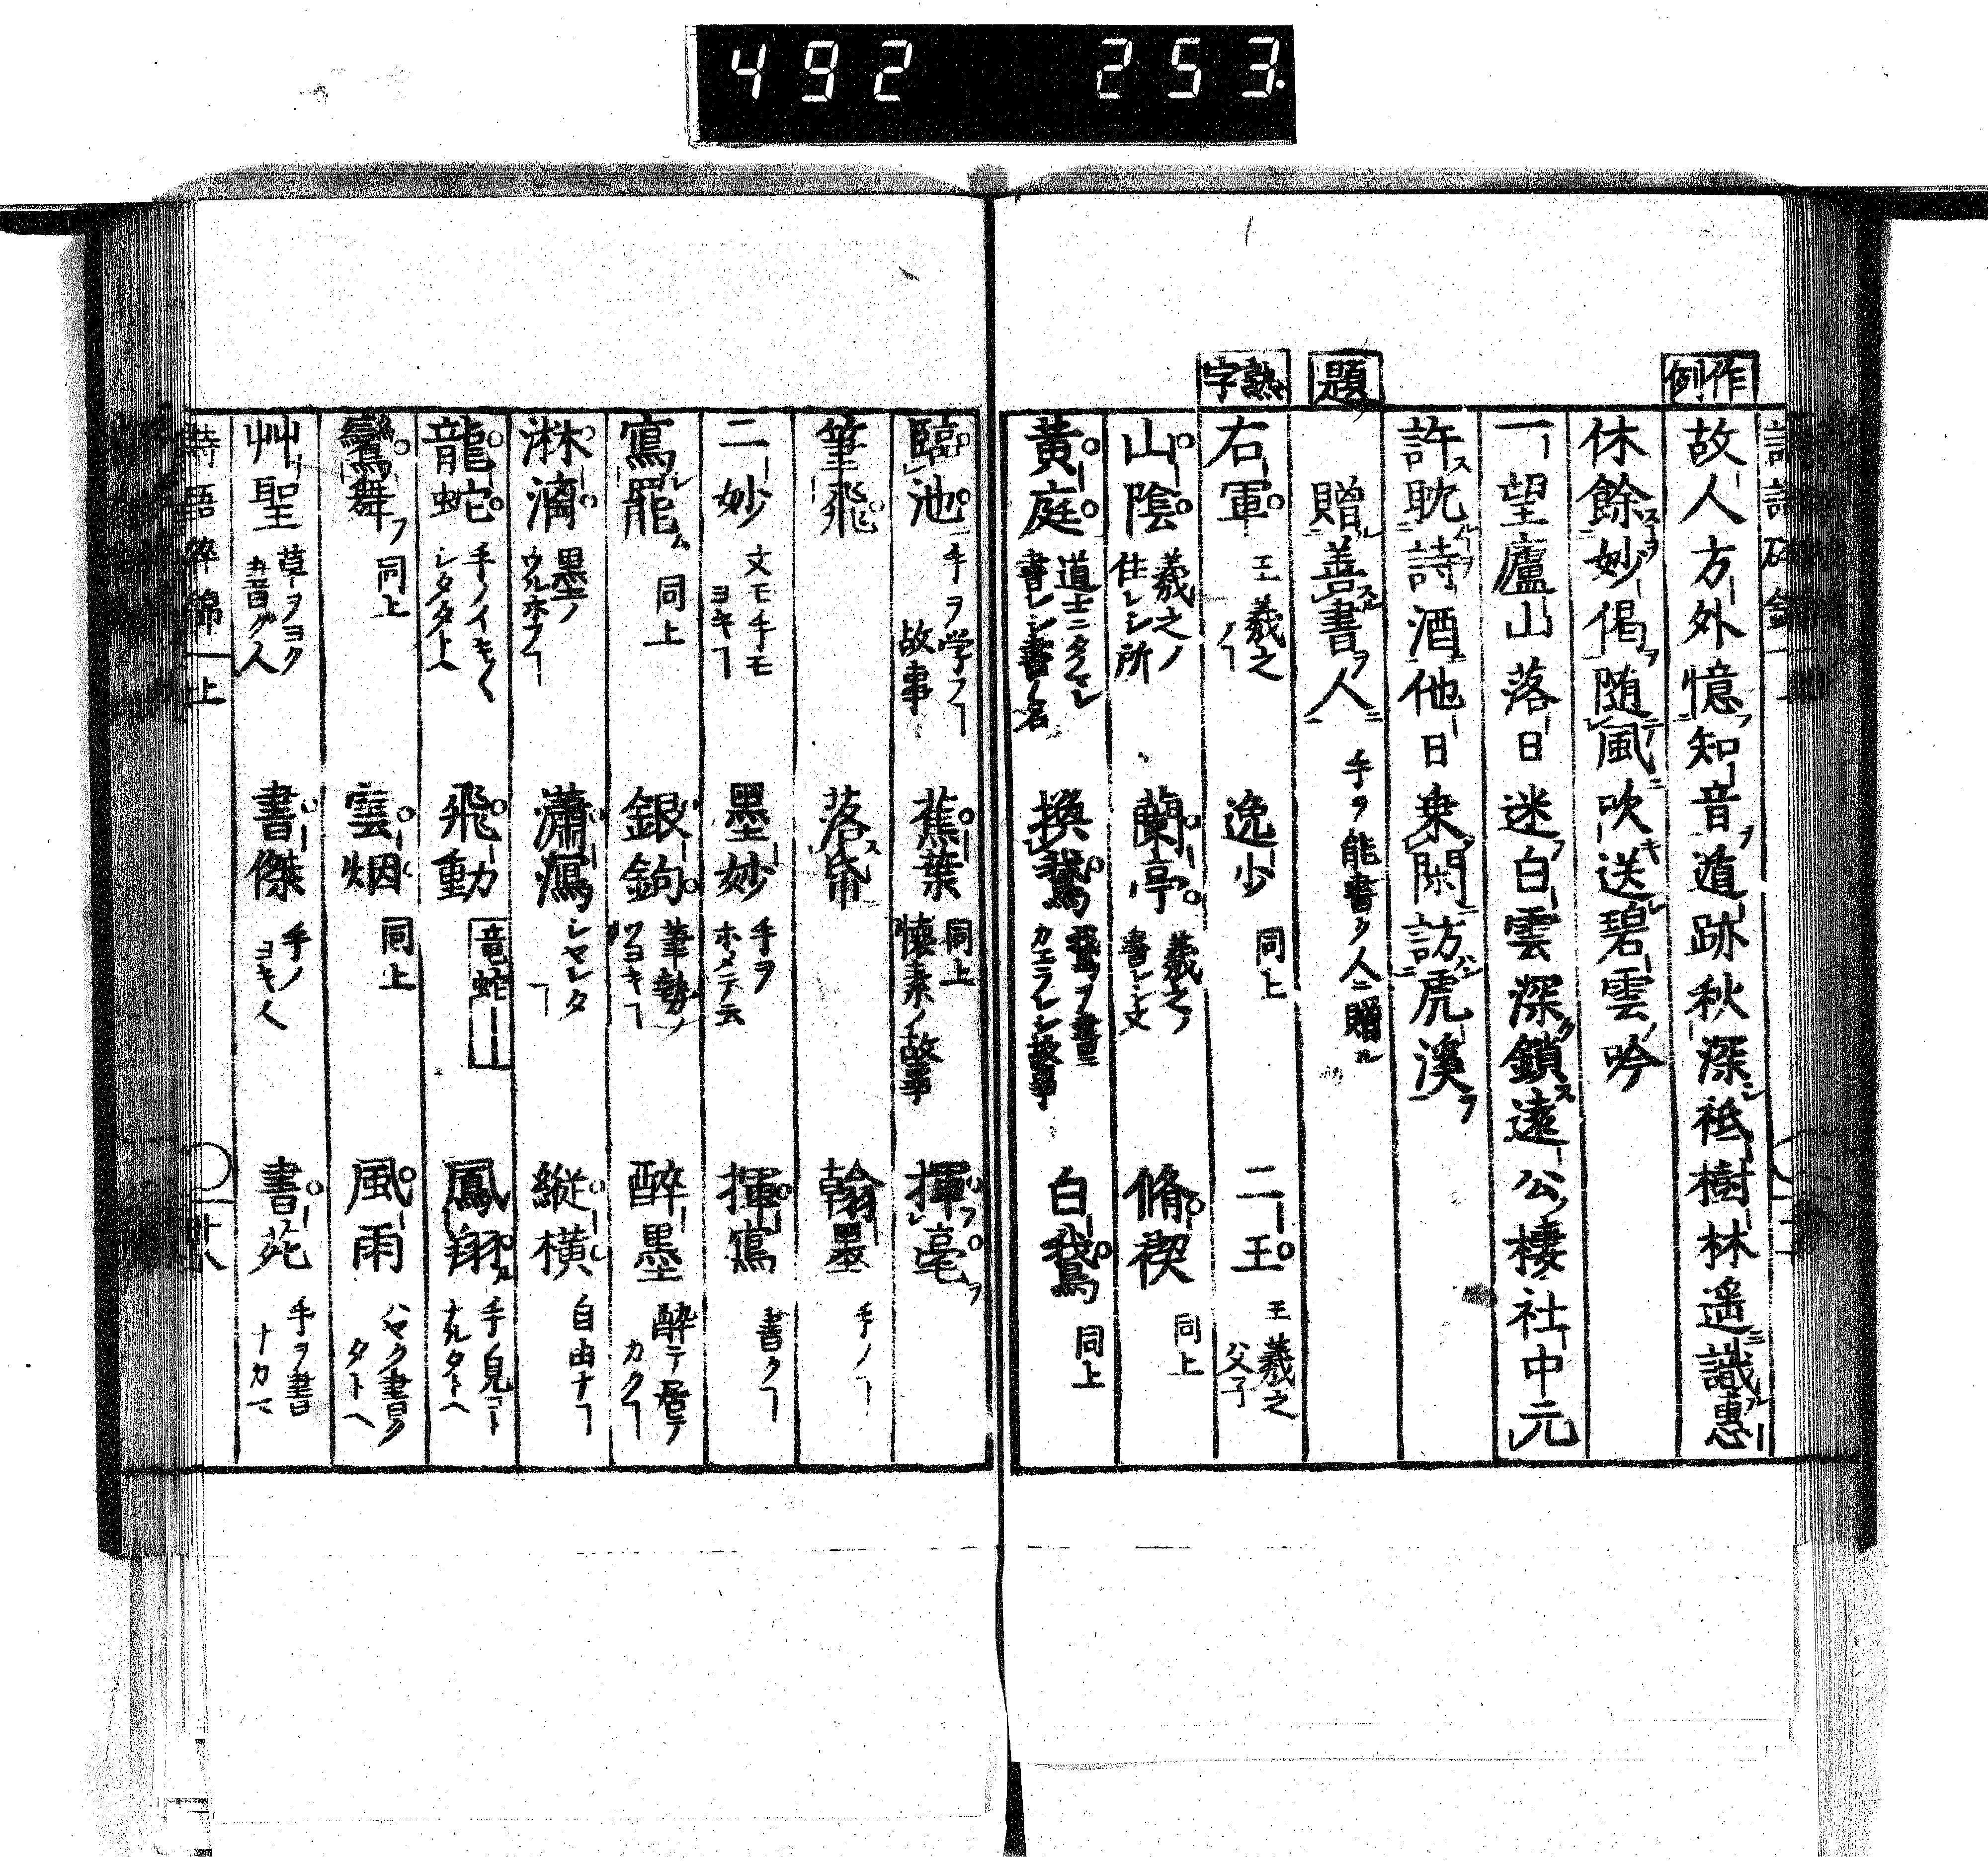 492 253.
作例
故人方外憶知音遁跡秋深祗樹林遥識惠
休餘妙偈随風吹送碧雲吟
一望廬山落日迷白雲深鎖遠公棲社中元
許耽詩酒他日乗閑訪虎溪
題
贈善書人 手ヲ能書ク人ニ贈ル
熟字
右軍 王羲之ノヿ 逸少 同上 二王 王羲之父子
山陰 羲之ノ住レシ所 蘭亭 羲之ノ書レシ文 脩禊 同上
黄庭 道士ニタクマレ書レシ書ノ名 換鵞 カエラレシ故事 白鵞 同上
臨池 手ヲ学フヿ故事 蕉葉 同上懐素ノ故事 揮毫
筆飛 落帋 翰墨 手ノヿ
二妙 文モ手モヨキヿ 墨妙 手ヲホメテ云 揮寫 書クヿ
寫罷 同上 銀鉤 筆勢ノツヨキヿ 醉墨 酔テ居テカクヿ
淋漓 墨ノウルホフヿ 瀟瀉 シヤレタヿ 縦横 自由ナヿ
龍蛇 手ノイキ〱シタタトヘ 飛動 竜蛇 鳳翔 手ノ見コトナルタトヘ
鸞舞 同上 雲烟 同上 風雨 ハヤク書クタトヘ
艸聖 草ヲヨクカク人 書傑 手ノヨキ人 書苑 手ヲ書ナカマ
詩語碎錦 上 廿八